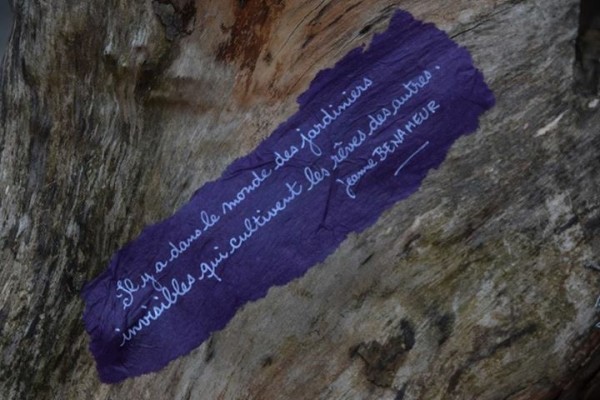 Il y a dans le monde des jardiniers
invisibles qui cultivent les rêves des autres.
Jeanne BENAMEUR